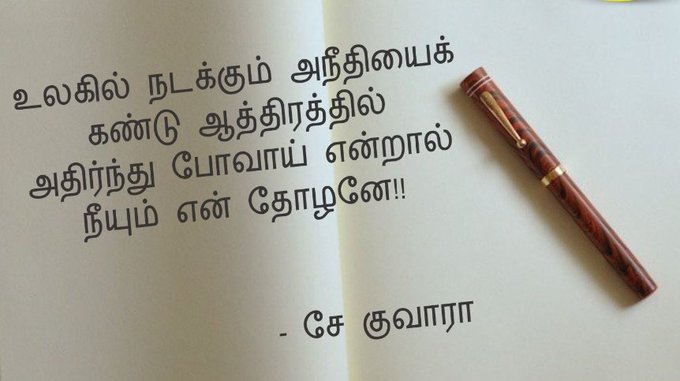 உலகில் நடக்கும் அநீதியைக்
கண்டு ஆத்திரத்தில்
அதிர்ந்து போவாய் என்றால்
நீயும் என் தோழனே!!
- சே குவாரா